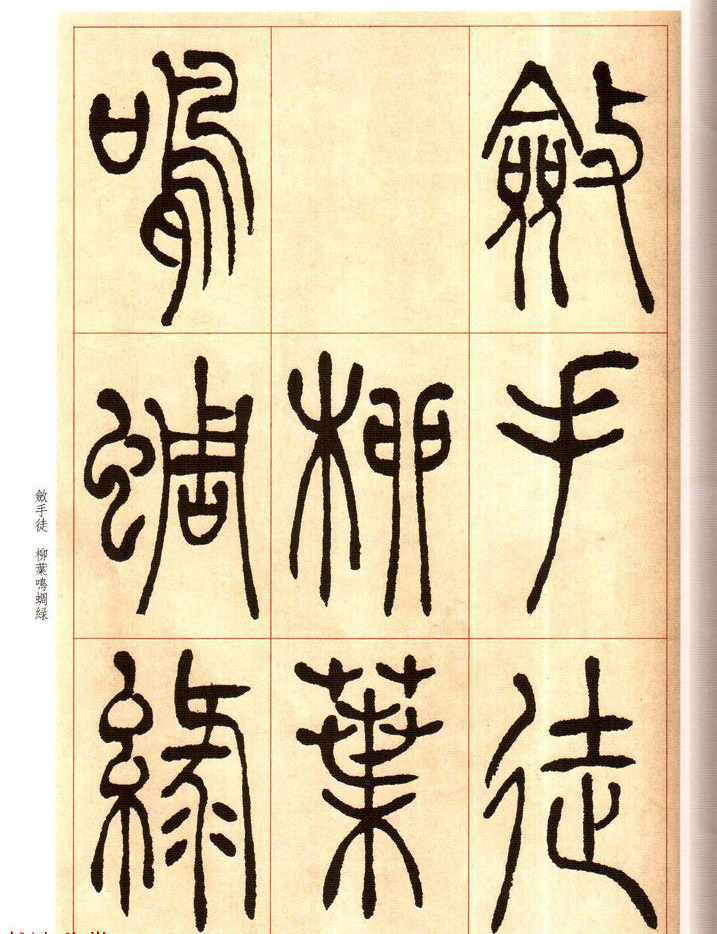 斂手徒
柳葉
鳴蜩綠
斂手徒 柳葉鳴蜩緑